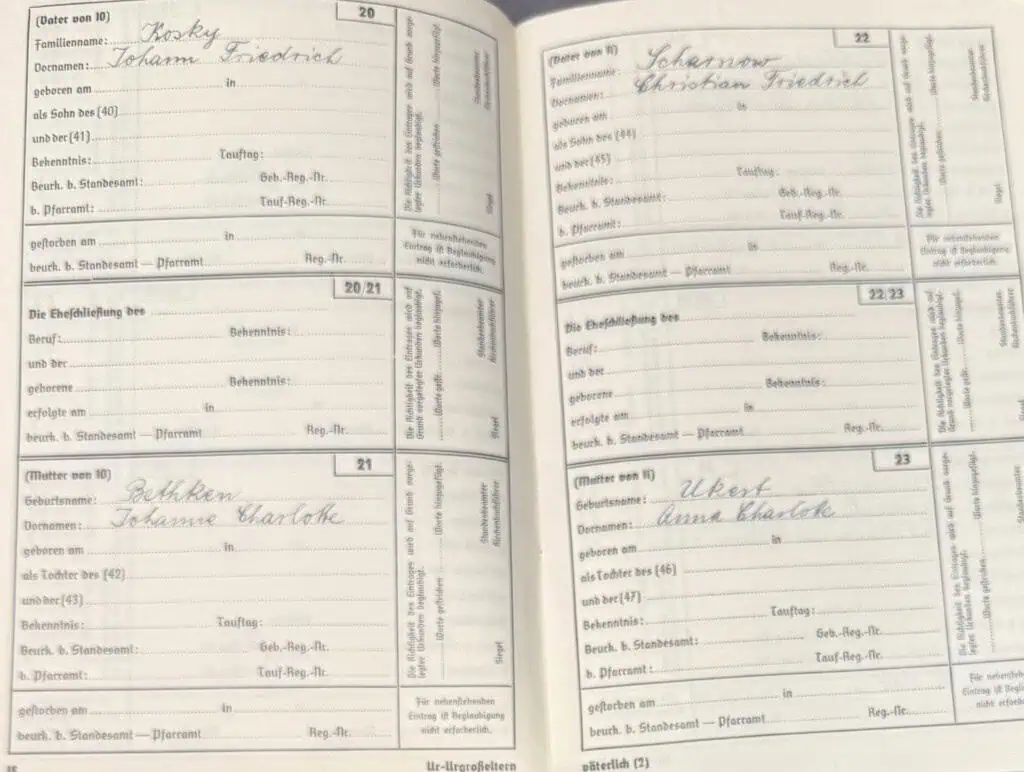 (Vater von 10)
20
Familienname: Kosky
Vornamen: Johann Friedrich
geboren am in
als Sohn des (40)
und der (41)
Bekenntnis: Tauftag:
Beurk. b. Standesamt: Geb.-Reg.-Nr.
b. Pfarramt: Tauf-Reg.-Nr.
Die Richtigkeit des Eintrages wird auf Grund vorge-
legter Urkunden beglaubigt.
Worte gestrichen Worte hinzugefügt.
Siegel
Standesbeamter
Kirchenbuchführer
gestorben am in
beurk. b. Standesamt — Pfarramt Reg.-Nr.
Für nebenstehenden
Eintrag ist Beglaubigung
nicht erforderlich.
20/21
Die Eheschließung des
Beruf: Bekenntnis:
und der
geborene Bekenntnis:
erfolgte am in
beurk. b. Standesamt — Pfarramt Reg.-Nr.
Die Richtigkeit des Eintrages wird auf
Grund vorgelegter Urkunden beglaubigt.
Worte gestr. Worte hinzugef.
Siegel
Standesbeamter
Kirchenbuchführer
(Mutter von 10)
21
Geburtsname: Bethken
Vornamen: Johanne Charlotte
geboren am in
als Tochter des (42)
und der (43)
Bekenntnis: Tauftag:
Beurk. b. Standesamt: Geb.-Reg.-Nr.
b. Pfarramt: Tauf-Reg.-Nr.
Die Richtigkeit des Eintrages wird auf Grund vorge-
legter Urkunden beglaubigt.
Worte gestrichen Worte hinzugefügt.
Siegel
Standesbeamter
Kirchenbuchführer
gestorben am in
beurk. b. Standesamt — Pfarramt Reg.-Nr.
Für nebenstehenden
Eintrag ist Beglaubigung
nicht erforderlich.
Ur-Urgroßeltern
(Vater von 11)
22
Familienname: Scharnow
Vornamen: Christian Friedrich
geboren am in
als Sohn des (44)
und der (45)
Bekenntnis: Tauftag:
Beurk. b. Standesamt: Geb.-Reg.-Nr.
b. Pfarramt: Tauf-Reg.-Nr.
Die Richtigkeit des Eintrages wird auf Grund vorge-
legter Urkunden beglaubigt.
Worte gestrichen Worte hinzugefügt.
Siegel
Standesbeamter
Kirchenbuchführer
gestorben am in
beurk. b. Standesamt — Pfarramt Reg.-Nr.
Für nebenstehenden
Eintrag ist Beglaubigung
nicht erforderlich.
22/23
Die Eheschließung des
Beruf: Bekenntnis:
und der
geborene Bekenntnis:
erfolgte am in
beurk. b. Standesamt — Pfarramt Reg.-Nr.
Die Richtigkeit des Eintrages wird auf
Grund vorgelegter Urkunden beglaubigt.
Worte gestr. Worte hinzugef.
Siegel
Standesbeamter
Kirchenbuchführer
(Mutter von 11)
23
Geburtsname: Ukert
Vornamen: Anna Charlotte
geboren am in
als Tochter des (46)
und der (47)
Bekenntnis: Tauftag:
Beurk. b. Standesamt: Geb.-Reg.-Nr.
b. Pfarramt: Tauf-Reg.-Nr.
Die Richtigkeit des Eintrages wird auf Grund vorge-
legter Urkunden beglaubigt.
Worte gestrichen Worte hinzugefügt.
Siegel
Standesbeamter
gestorben am in
beurk. b. Standesamt — Pfarramt Reg.-Nr.
Für nebenstehenden
Eintrag ist Beglaubigung
nicht erforderlich.
väterlich (2)